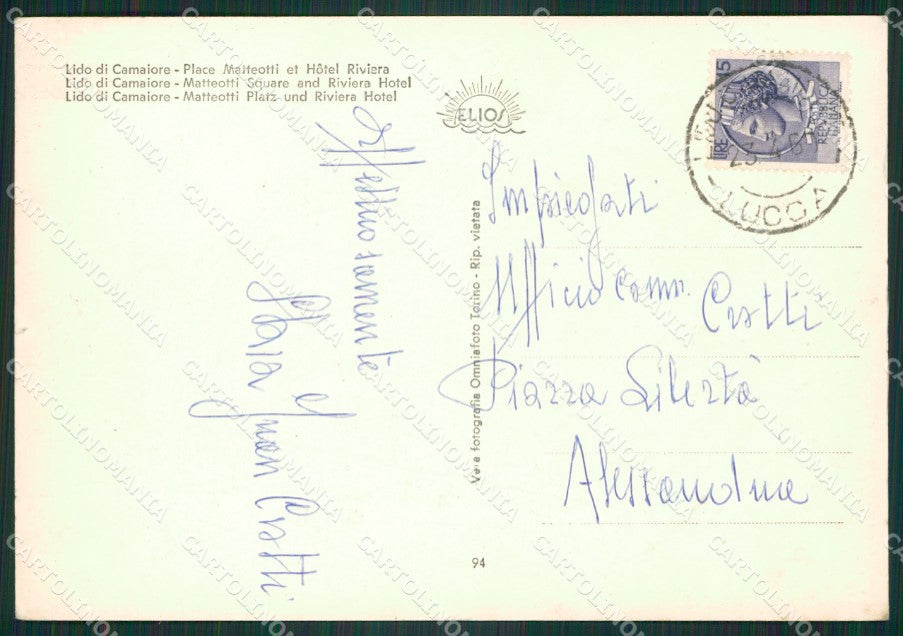 Lido di Camaiore - Place Matteotti et Hôtel Riviera
Lido di Camaiore - Matteotti Square and Riviera Hotel
Lido di Camaiore - Matteotti Platz und Riviera Hotel
ELIOS
Affettuosamente
Ivan Cratti
Vera fotografia Omniafoto Torino - Rip. vietata
94
LIRE 15
REPUBBLICA
ITALIANA
LUCCA
Impiegati
Ufficio comm. Cratti
Piazza Libertà
Alessandria
CARTOLINOMANIA